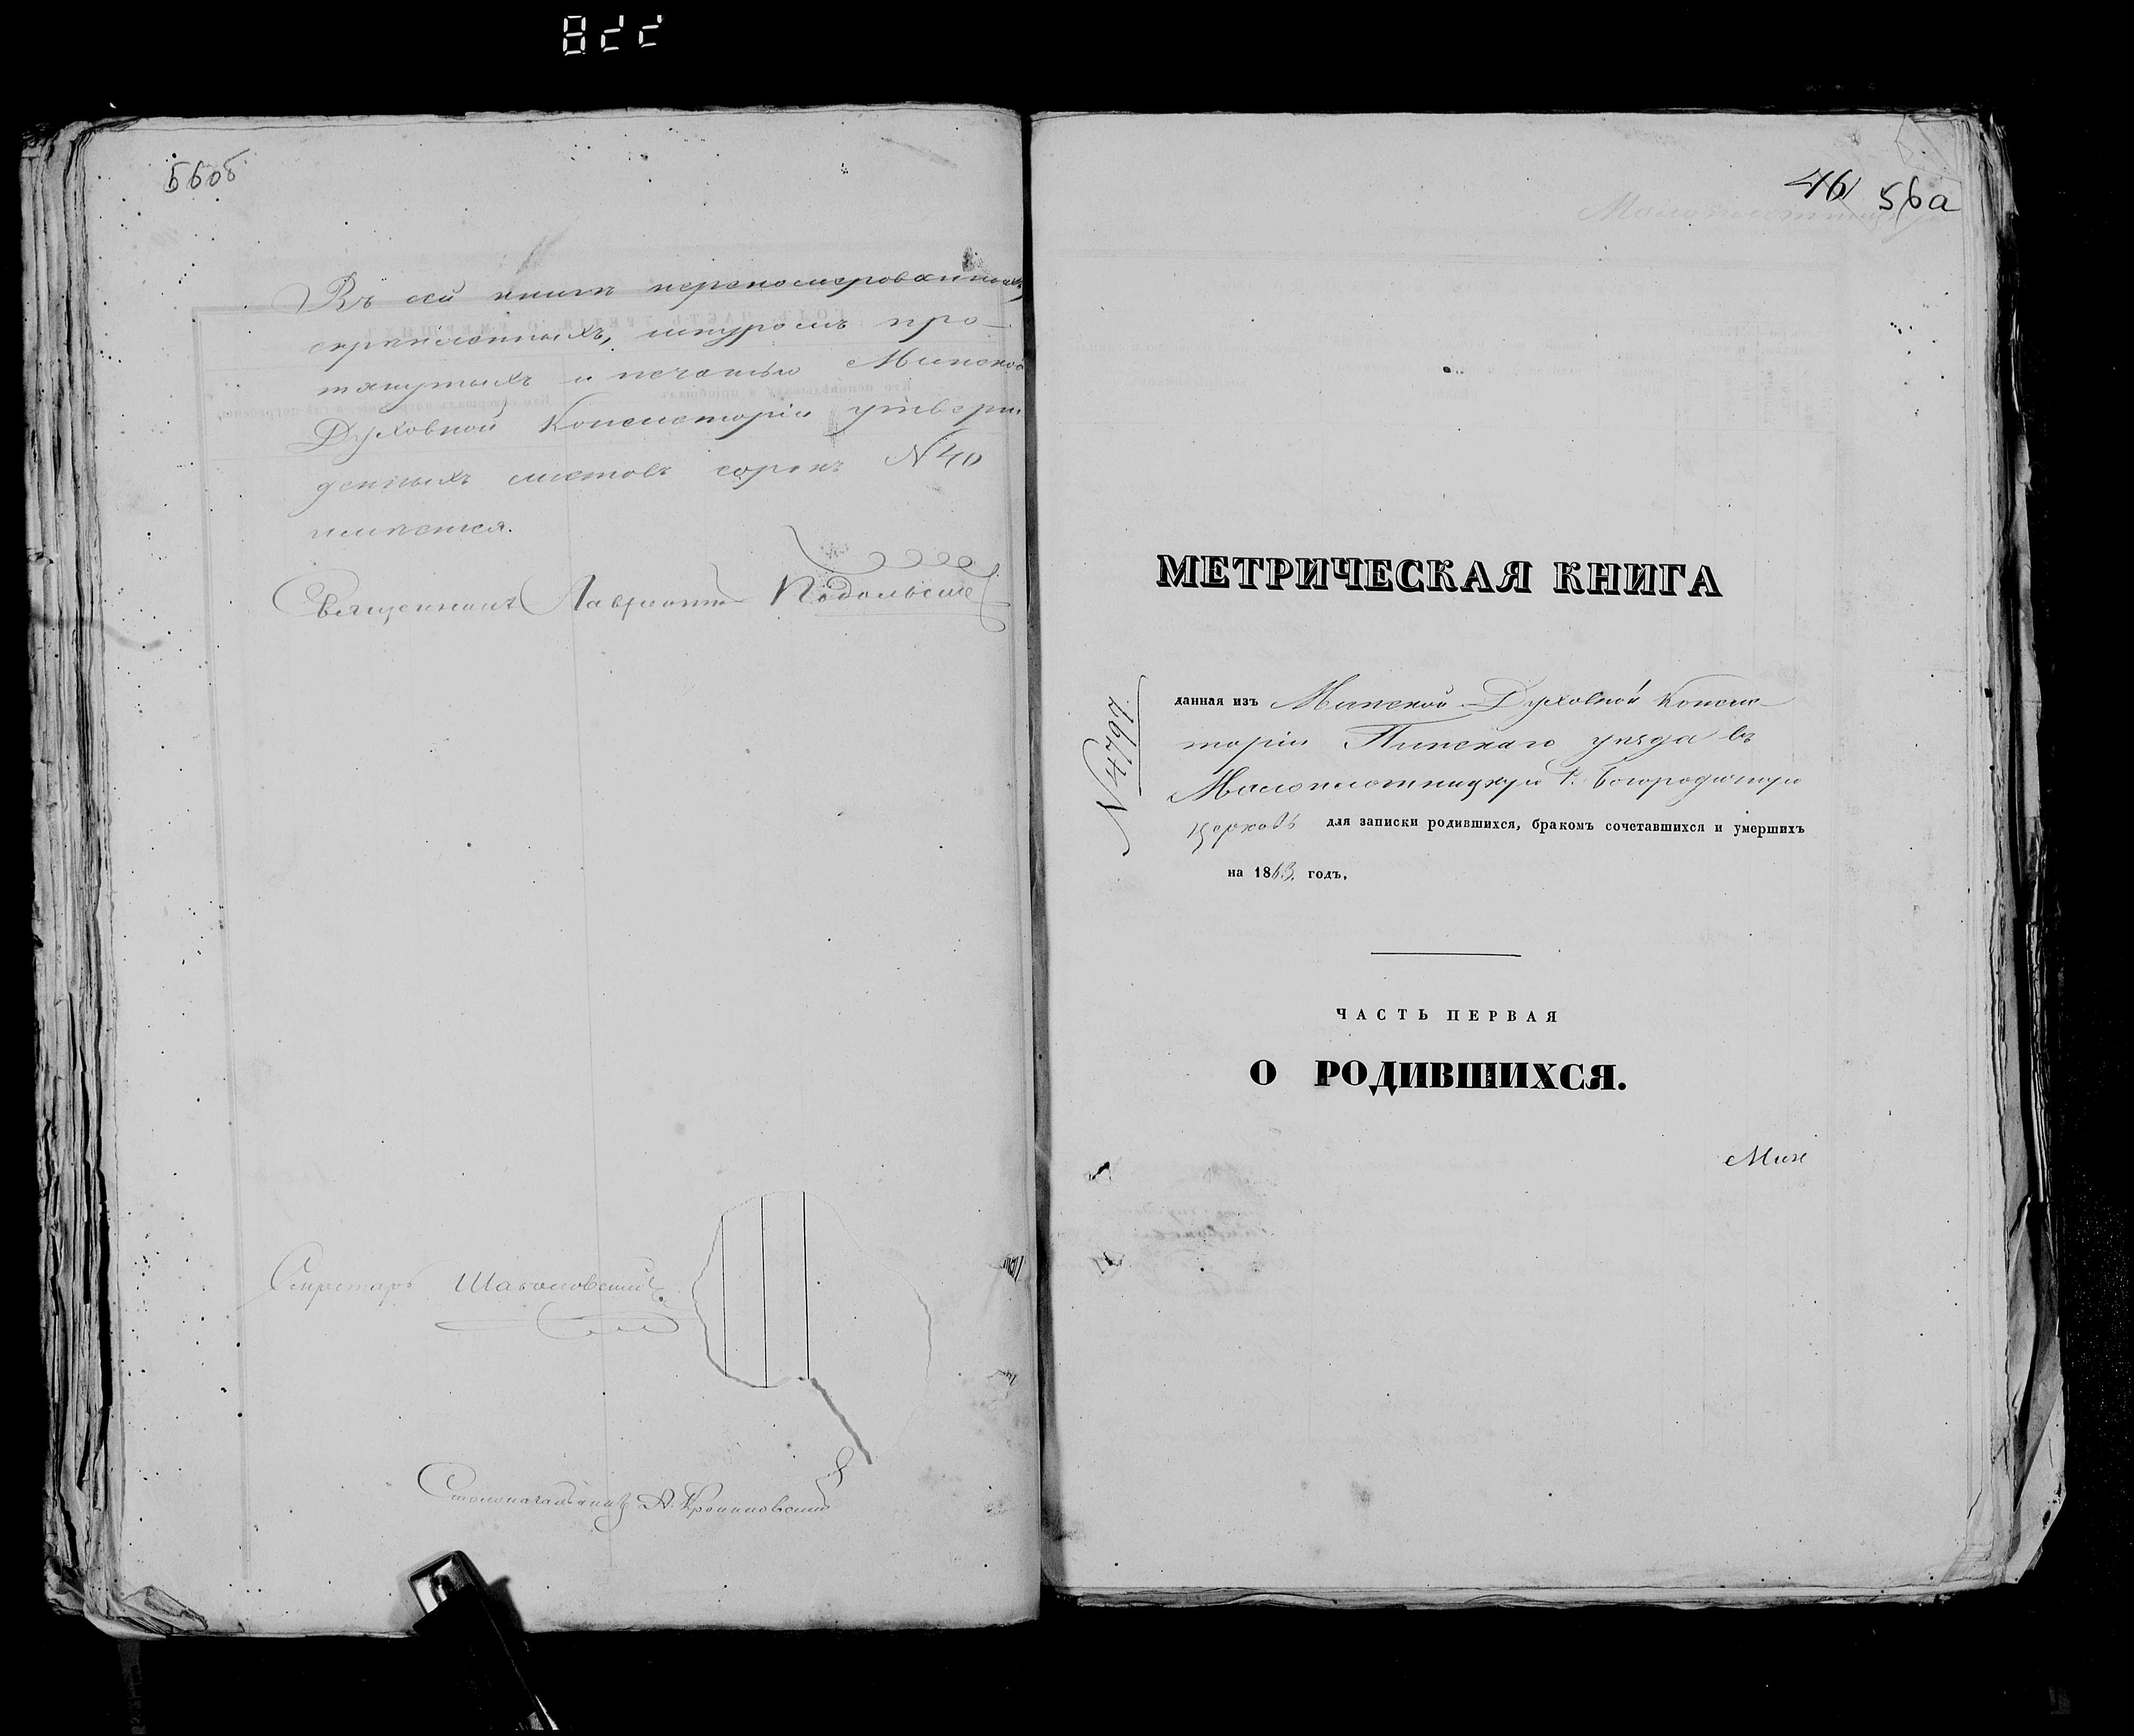 56об
Въ сей книгѣ переномерованныхъ,
скрѣпленныхъ, шнуромъ про-
тянутыхъ и печатью Минской
Духовной Консисторіи утверж
денныхъ листовъ сорокъ N 40
имѣется.
Священникъ Лаврентій Подольскій
Секретарь
Столоначальникъ А.
46 56а
МЕТРИЧЕСКАЯ КНИГА
N 4797
данная изъ Минской Духовной Консис-
торіи Пинскаго уѣзда въ
Малоплотницкую Р. Богородичную
церковь для записки родившихся, бракомъ сочетавшихся и умершихъ
на 1863 годъ.
ЧАСТЬ ПЕРВАЯ
О РОДИВШИХСЯ.